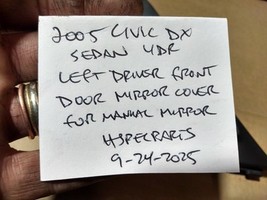 2005 CIVIC DX
SEDAN 4DR
LEFT DRIVER FRONT
DOOR MIRROR COVER
FOR MANUAL MIRROR
HSPECPARTS
9-24-2025